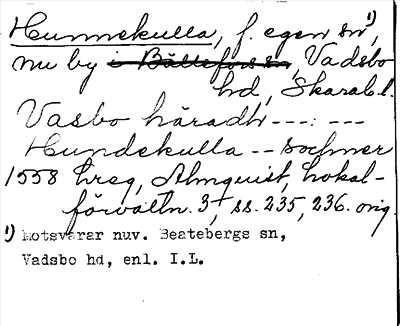 Hunnekulla, f. egen sn¹⁾,
nu by i Bällefors sn, Vadsbo
hd, Skarab.l.
Vasbo häradh ---: ---
Hundekulla -- sochner
1558 hreg, Almquist, Lokal-
förvaltn. 3, ss. 235, 236. orig.
1) Motsvarar nuv. Beatebergs sn,
Vadsbo hd, enl. I.L.